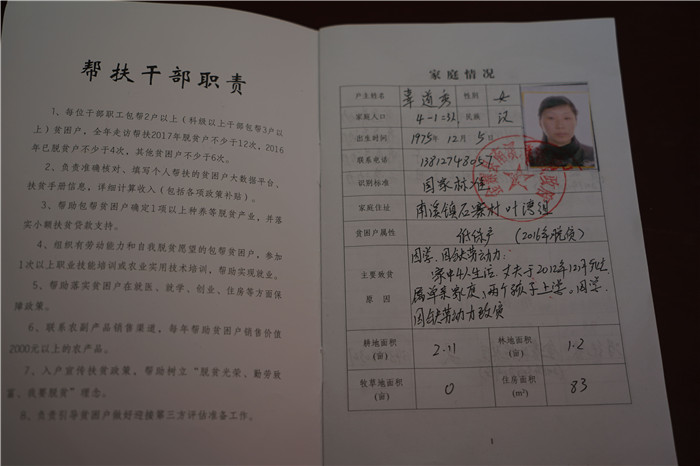 帮扶干部职责
1、每位干部职工包帮2户以上（科级以上干部包帮3户以
上）贫困户，全年走访帮扶2017年脱贫户不少于12次，2016
年已脱贫户不少于4次，其他贫困户不少于6次。
2、负责准确核对、填写个人帮扶的贫困户大数据平台、
扶贫手册信息，详细计算收入（包括各项政策补贴）。
3、帮助包帮贫困户确定1项以上种养等脱贫产业，并落
实小额扶贫贷款支持。
4、组织有劳动能力和自我脱贫愿望的包帮贫困户，参加
1次以上职业技能培训或农业实用技术培训，帮助实现就业。
5、帮助落实贫困户在就医、就学、创业、住房等方面保
障政策。
6、联系农副产品销售渠道，每年帮助贫困户销售价值
2000元以上的农产品。
7、入户宣传扶贫政策，帮助树立“脱贫光荣、勤劳致
富、我要脱贫”理念。
8、负责引导贫困户做好迎接第三方评估准备工作。
家庭情况
户主姓名 性别 女
家庭人口 民族 汉
出生时间 1975年12月5日
联系电话
识别标准 国家标准
家庭住址 南溪镇石寨村叶湾组
贫困户属性 低保户（2016年脱贫）
主要致贫
原因
因学、因缺劳动力：
家中4人生活，丈夫于2012年12月死亡，
属单亲家庭，两个孩子上学。因学、
因缺劳动力致贫
耕地面积
（亩） 2.11 林地面积
（亩） 1.2
牧草地面积
（亩） 0 住房面积
（m²） 83
1